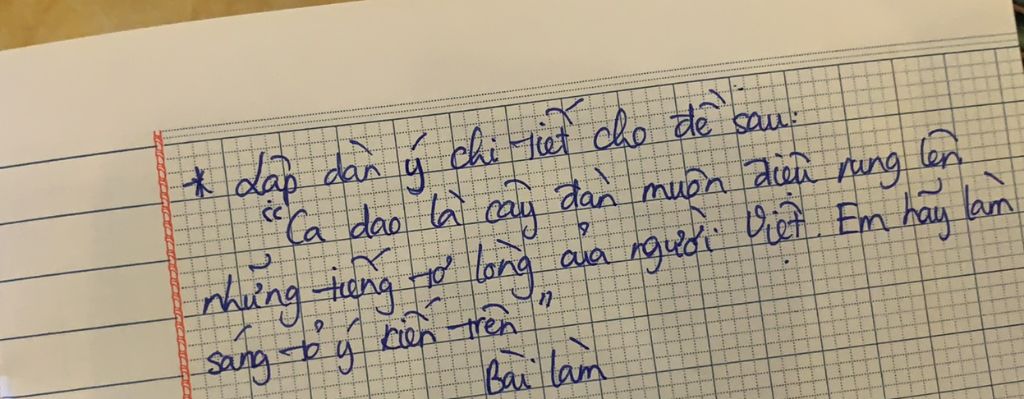 * Lập dàn ý chi tiết cho đề sau:
"Ca dao là cây đàn muôn điệu rung lên
những tiếng tơ lòng của người Việt. Em hãy làm
sáng tỏ ý kiến trên"
Bài làm